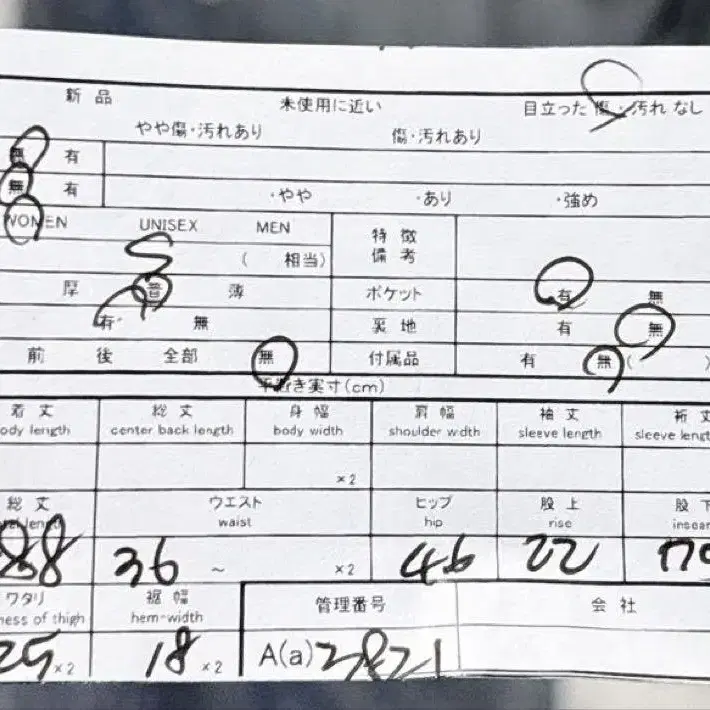 新品 未使用に近い 目立った傷・汚れなし
やや傷・汚れあり 傷・汚れあり
無 有
無 有 ・やや ・あり ・強め
WOMEN UNISEX MEN 特徴
備考
S ( 相当)
厚 普 薄 ポケット 有 無
有 無 裏地 有 無
前 後 全部 無 付属品 有 無 ( )
平置き実寸(cm)
着丈 総丈 身幅 肩幅 袖丈 裄丈
body length center back length body width shoulder width sleeve length sleeve length
×2
総丈 ウエスト ヒップ 股上 股下
waist hip rise inseam
88 36 ~ ×2 46 22
ワタリ 裾幅 管理番号 会社
ness of thigh hem-width
25 ×2 18 ×2 A(a) 3821